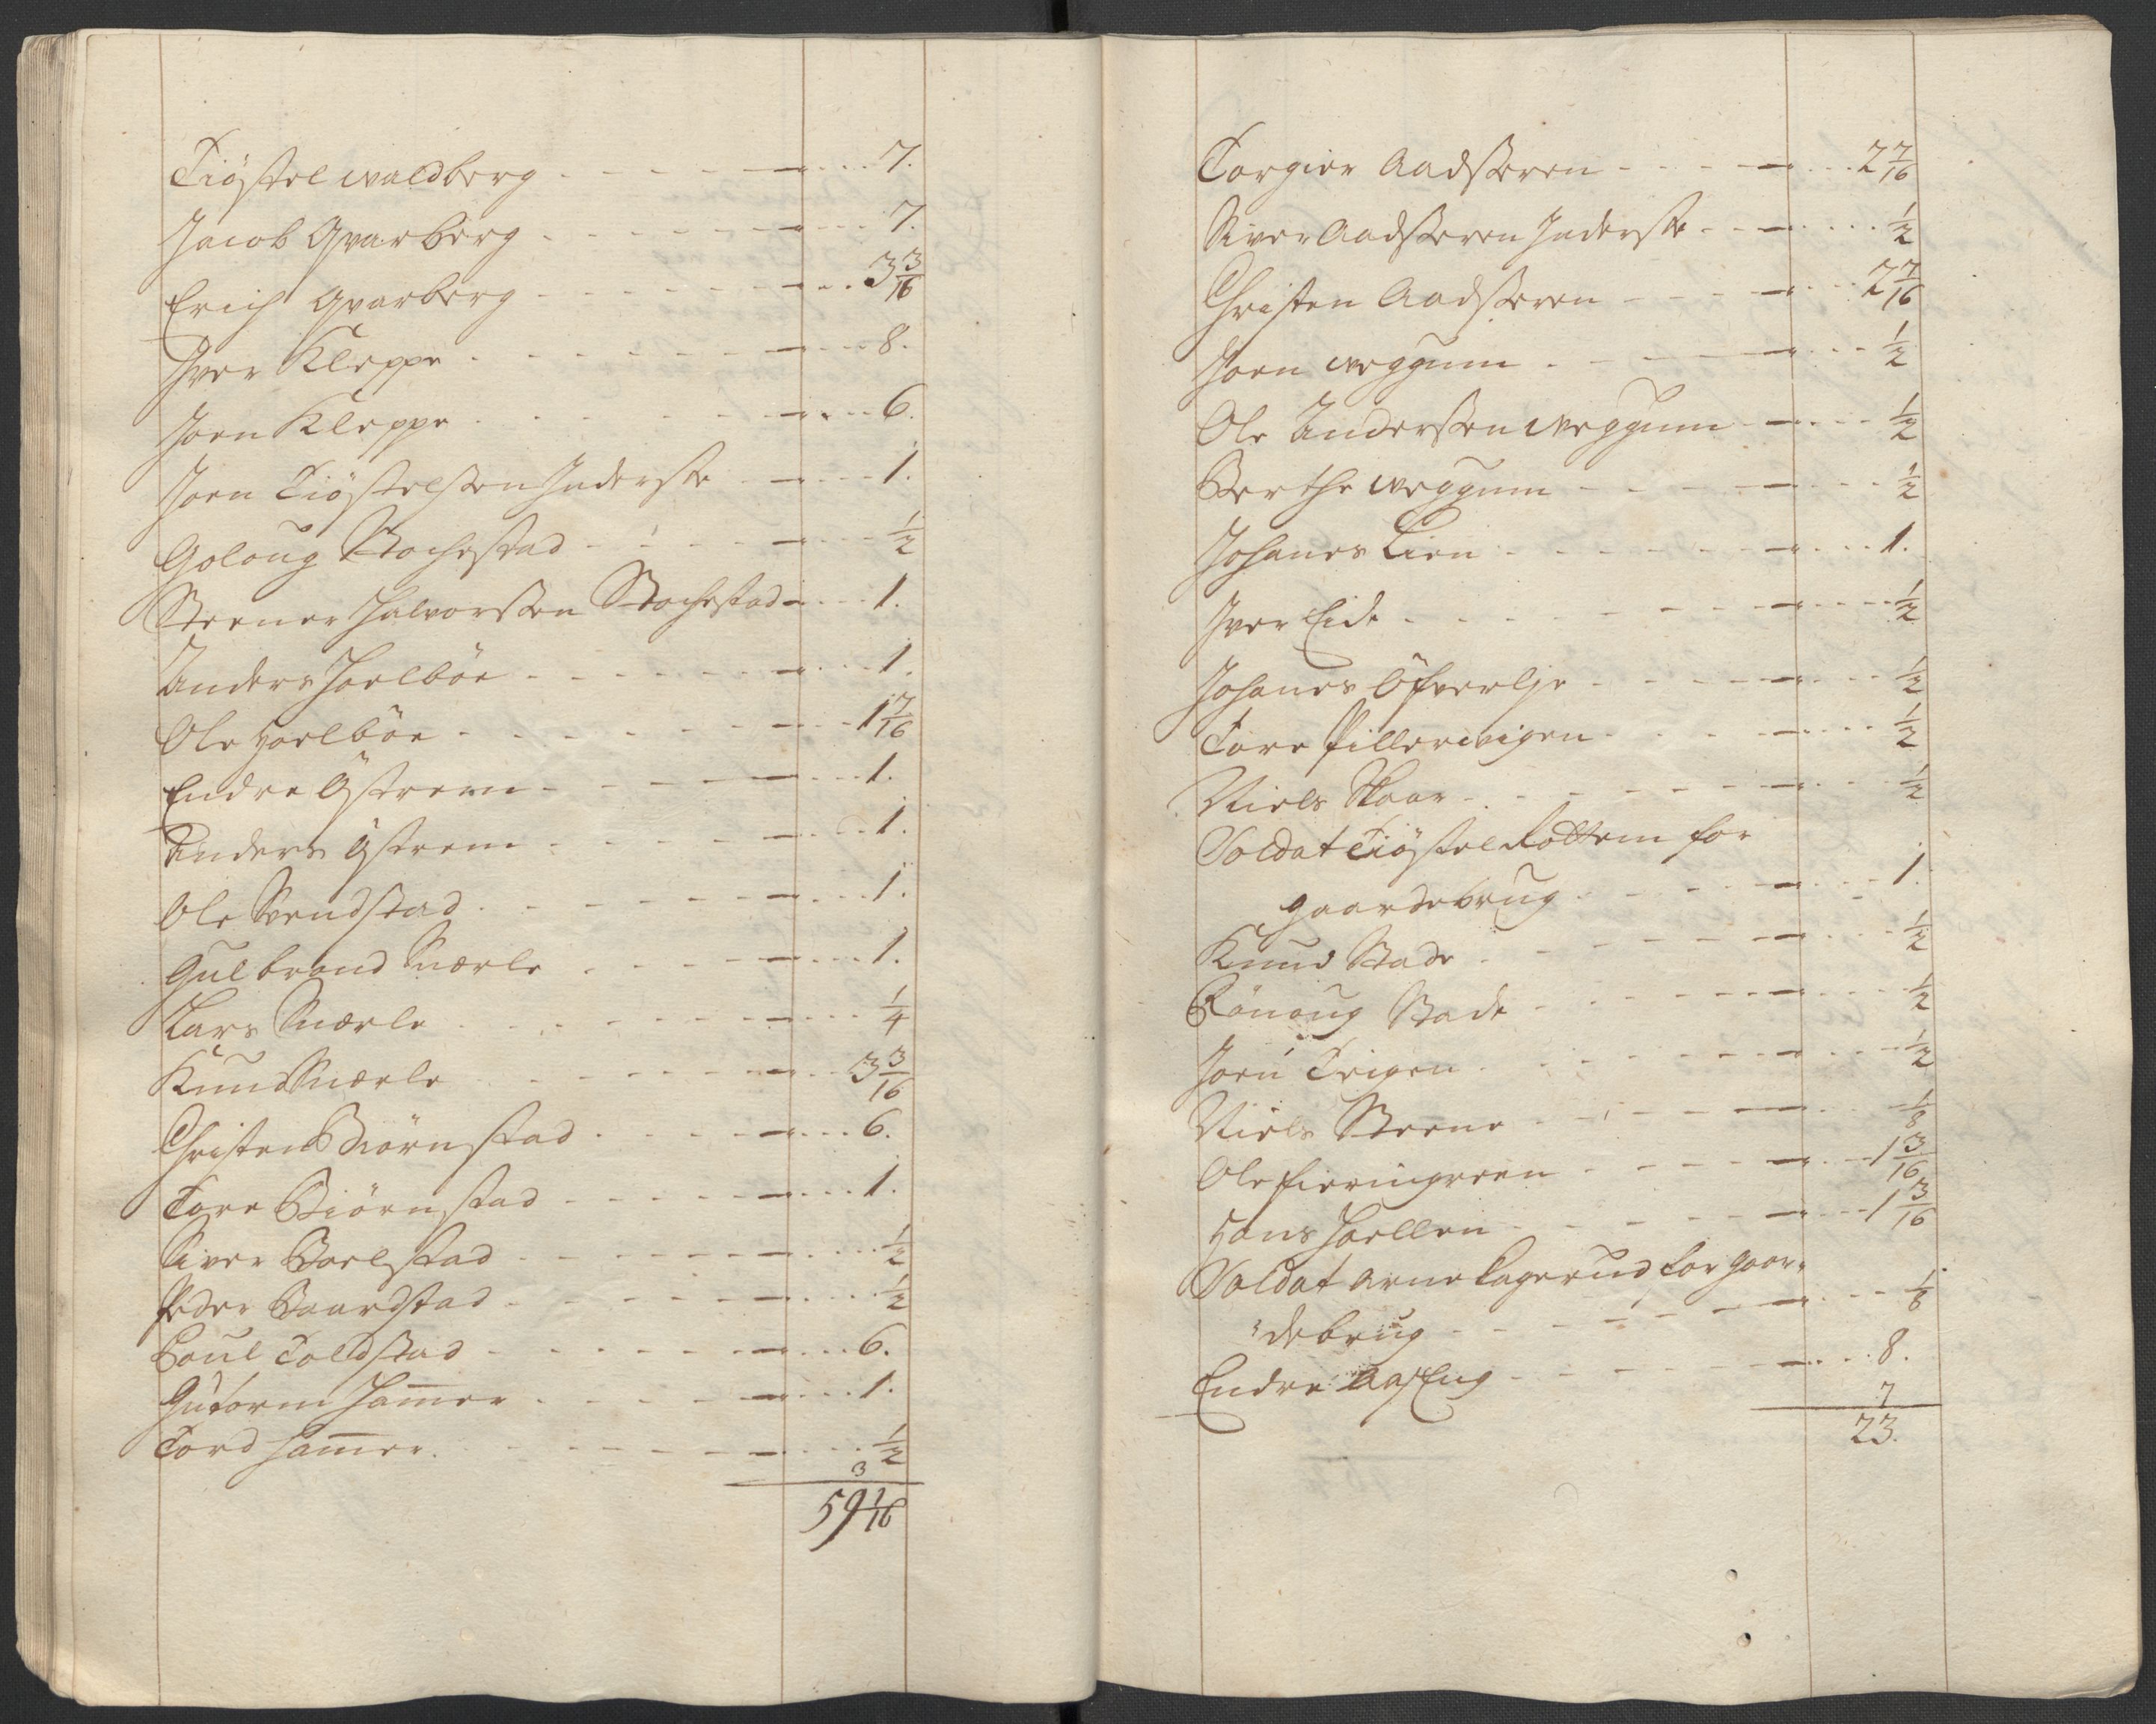 Tiøstel Waldberg - - - - - 7.
Jacob Qvarberg - - - - - 7.
Erich Qvarberg - - - - - 3 3/16
Iver Kleppe - - - - - 8.
Joen Kleppe - - - - - 6.
Joen Tiøstelssen Inderste - - - 1.
Goloug Stochestad - - - - 1/2
Steener Halvorssen Stochestad - - 1.
Anders Hoelbøe - - - - - 1.
Ole Hoelbøe - - - - - 1 7/16
Endre Østrem - - - - - 1.
Anders Østrem - - - - - 1.
Ole Svendstad - - - - - 1.
Gulbrand Snerle - - - - - 1.
Lars Snerle - - - - - 1/4
Knud Snerle - - - - - 3 3/16
Christen Biørnstad - - - - 6.
Tore Biørnstad - - - - - 1.
Siver Boelstad - - - - - 1/2
Peder Baardstad - - - - - 1/2
Poul Toldstad - - - - - 6.
Gutorm Hammer - - - - - 1.
Tord Hammer - - - - - 1/2
3
59 1/16
Torgier Aadsseren - - - - 2 7/16
Siver Aadsseren Inderste - - - 1/2
Christen Aadsseren - - - - 2 7/16
Joen Weggum - - - - - 1/2
Ole Anderssen Weggum - - - 1/2
Berthe Weggum - - - - - 1/2
Johanes Lien - - - - - 1.
Iver Eide - - - - - 1/2
Johanes Øfverlje - - - - - 1/2
Tore Pillerwigen - - - - 1/2
Niels Skaar - - - - - 1/2
Soldat Tiøstel Rottem for
gaardebrug - - - - - 1.
Knud Stade - - - - - 1/2
Rønoug Stade - - - - - 1/2
Joen Teigen - - - - - 1/2
Niels Steene - - - - - 1/8
Ole Fieringreen - - - - - 1 3/16
Hans Hoellen - - - - - 1 3/16
Soldat Arne Lagerud for gaar-
debrug - - - - - 1/8
Endre Aaseng - - - - - 8.
7
23.